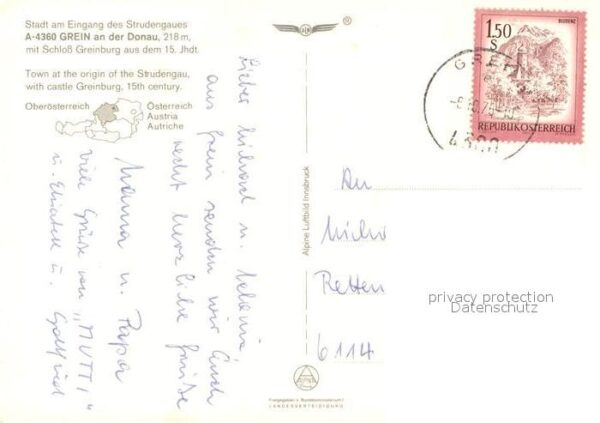 Stadt am Eingang des Strudengaues
A-4360 GREIN an der Donau, 218 m,
mit Schloß Greinburg aus dem 15. Jhdt.
Town at the origin of the Strudengau,
with castle Greinburg, 15th century.
Oberösterreich
Österreich
Austria
Autriche
Lieber u. Melanie,
aus Grein senden wir Euch
recht herzliche Grüße
Mama u. Papa
Viele Grüße von "MUTTI"
u. Elisabeth u. Gottfried
Alpine Luftbild Innsbruck
Freigegeben v. Bundesministerium f.
LANDESVERTEIDIGUNG
®
1.50
S
BLUDENZ
REPUBLIK ÖSTERREICH
GREIN
An
Retten
6114
privacy protection
Datenschutz